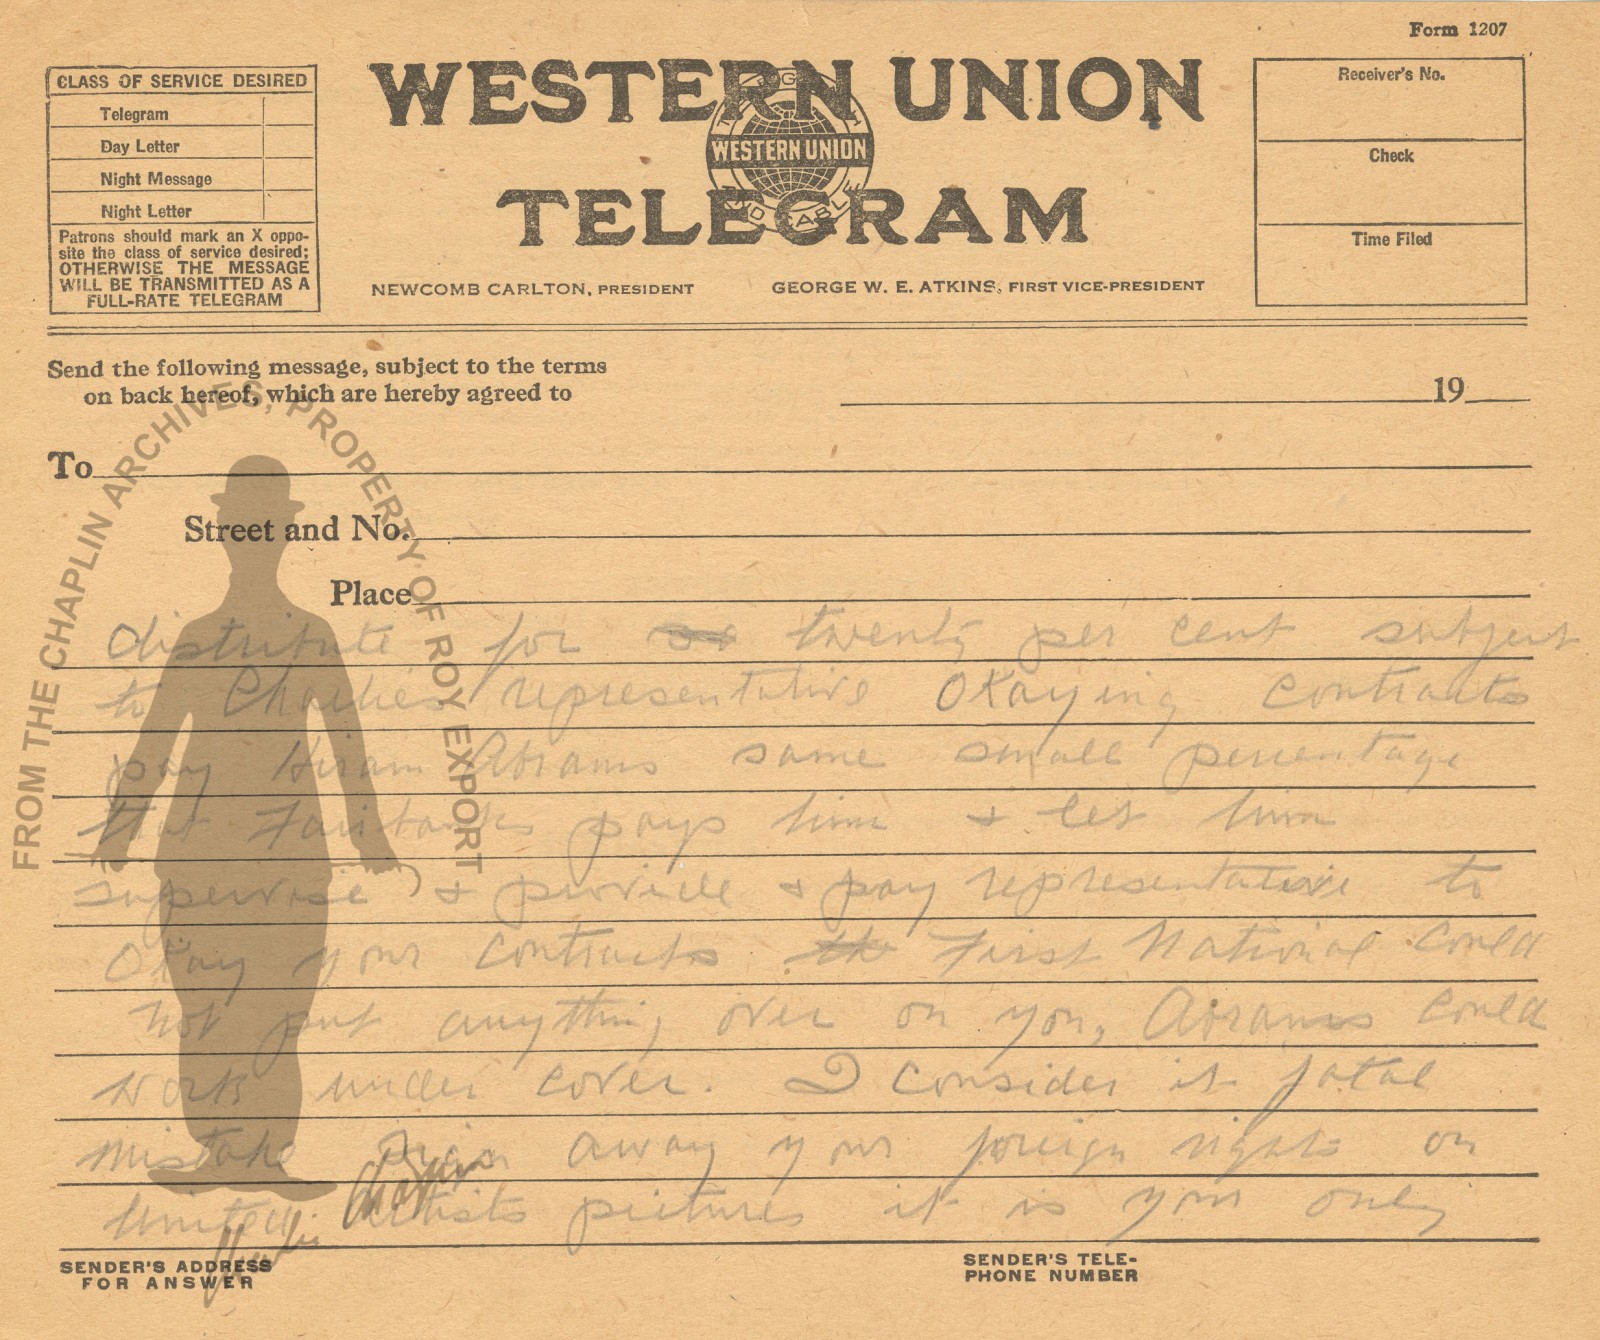 Form 1207
CLASS OF SERVICE DESIRED
Telegram
Day Letter
Night Message
Night Letter
Patrons should mark an X oppo-
site the class of service desired;
OTHERWISE THE MESSAGE
WILL BE TRANSMITTED AS A
FULL-RATE TELEGRAM
WESTERN UNION
TELEGRAPH AND CABLE
WESTERN UNION
TELEGRAM
NEWCOMB CARLTON, PRESIDENT
GEORGE W. E. ATKINS, FIRST VICE-PRESIDENT
Receiver's No.
Check
Time Filed
Send the following message, subject to the terms
on back hereof, which are hereby agreed to
19
To
Street and No.
Place
FROM THE CHAPLIN ARCHIVES, PROPERTY OF ROY EXPORT
distribute for twenty per cent subject
to Charlies representative Okaying contracts
pay Hiram Abrams same small percentage
that Fairbanks pays him & let him
supervise & provide & pay representative to
Okay your contracts First National could
not put anything over on you, Abrams could
work under cover. I consider it fatal
mistake away your foreign rights on
United Artists pictures it is your only
Charlie Chaplin
SENDER'S ADDRESS
FOR ANSWER
SENDER'S TELE-
PHONE NUMBER